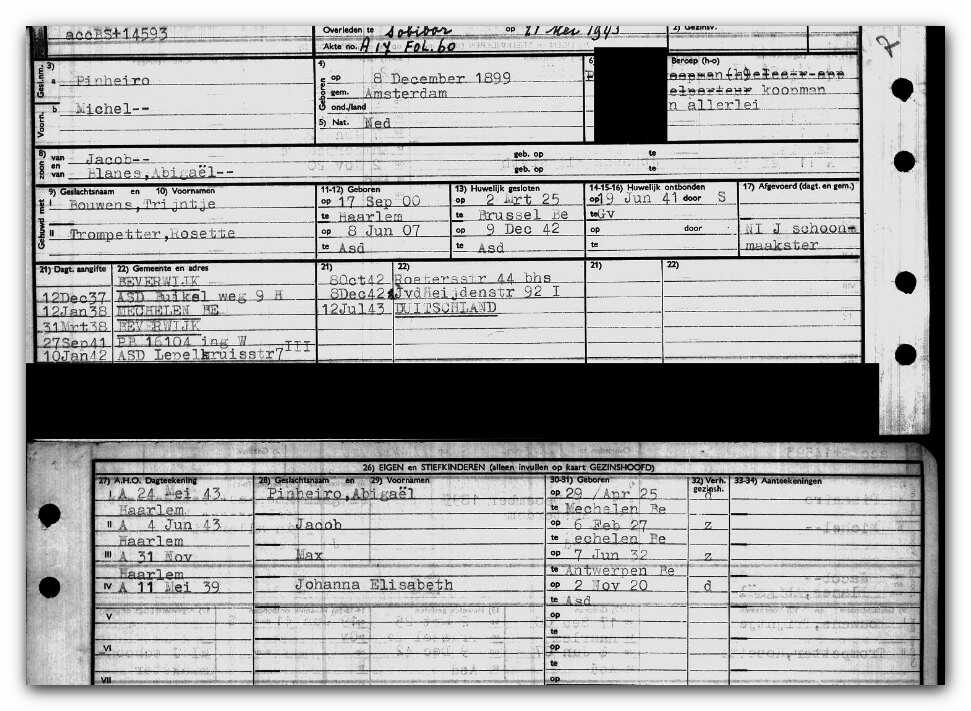 accBS+14593 Overleden te Sobibor op 21 Mei 1943 2) Gezinsv.
Akte no. A 17 Fol. 60
3) Gesl.nm. a Pinheiro
Voorn. b Michel--
4) Geboren op 8 December 1899
gem. Amsterdam
ond./land
5) Nat. Ned
6)
Beroep (h-o)
koopman
n allerlei
8) zoon van Jacob-- geb. op te
en van Blanes,Abigaël-- geb. op te
9) Geslachtsnaam en 10) Voornamen 11-12) Geboren 13) Huwelijk gesloten 14-15-16) Huwelijk ontbonden 17) Afgevoerd (dagt. en gem.)
Gehuwd met I Bouwens,Trijntje op 17 Sep 00 op 2 Mrt 25 op 19 Jun 41 door S
te Haarlem te Brussel Be te Gv
II Trompetter,Rosette op 8 Jun 07 op 9 Dec 42 op door NI J schoon-
te Asd te Asd te maakster
21) Dagt. aangifte 22) Gemeente en adres 21) 22) 21) 22)
BEVERWIJK 8Oct42 Roetersstr 44 bhs
12Dec37 ASD Buiksl weg 9 H 8Dec42 JvdHeijdenstr 92 I
12Jan38 MECHELEN BE 12Jul43 DUITSCHLAND
31Mrt38 BEVERWIJK
27Sep41 PB 16104 ing W
10Jan42 ASD Lepelkruisstr7 III
26) EIGEN en STIEFKINDEREN (alleen invullen op kaart GEZINSHOOFD)
27) A.H.O. Dagteekening 28) Geslachtsnaam en 29) Voornamen 30-31) Geboren 32) Verh. gezinsh. 33-34) Aanteekeningen
I A 24 Mei 43 Pinheiro,Abigaël op 29 Apr 25 d
Haarlem te Mechelen Be
II A 4 Jun 43 Jacob op 6 Feb 27 z
Haarlem te echelen Be
III A 31 Nov Max op 7 Jun 32 z
Haarlem te Antwerpen Be
IV A 11 Mei 39 Johanna Elisabeth op 2 Nov 20 d
te Asd
V op
te
VI op
te
VII op